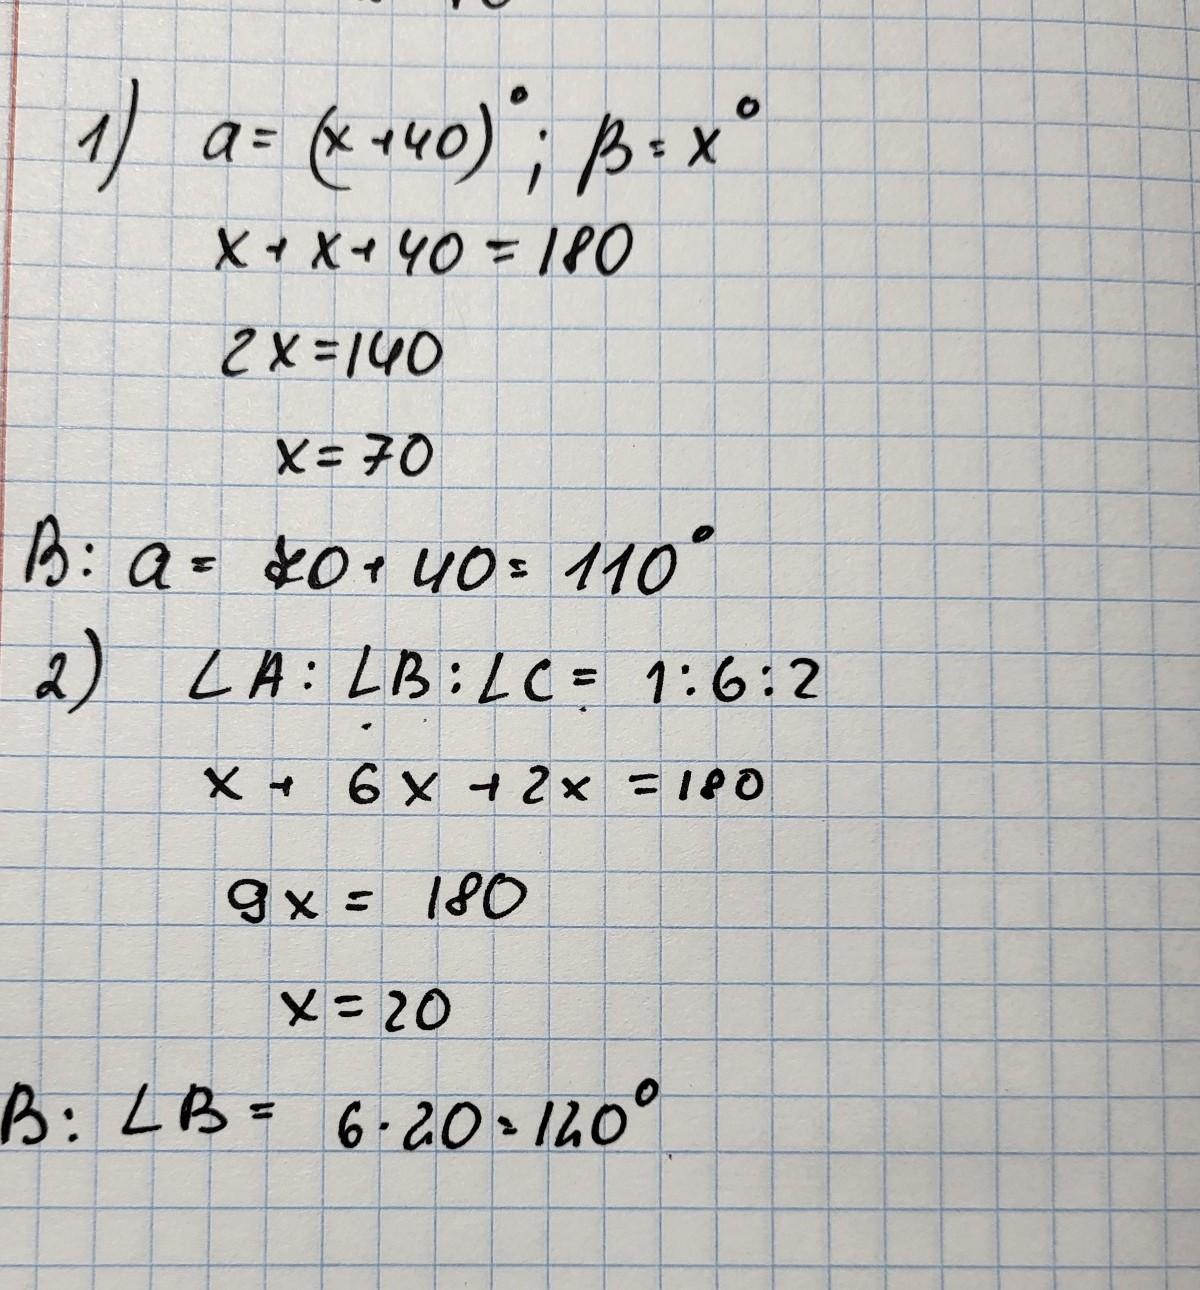 1) a = (x+40)°; β = x°
x + x + 40 = 180
2x = 140
x = 70
B: a = 70 + 40 = 110°
2) ∠A : ∠B : ∠C = 1 : 6 : 2
x + 6x + 2x = 180
9x = 180
x = 20
B: ∠B = 6 · 20 = 120°